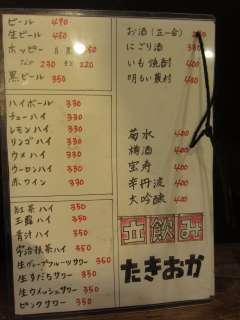 ビール 490
生ビール 450
ホッピー
黒ビール 350
ハイボール 330
チューハイ 330
レモンハイ 330
リンゴハイ 330
ウメハイ 330
ウーロンハイ 330
赤ワイン 330
紅茶ハイ 350
玉露ハイ 350
青汁ハイ 350
宇治抹茶ハイ 350
生グレープフルーツサワー 350
生すだちサワー 350
生ウメッシュサワー 350
ピンクサワー 350
お酒(五一合)
にごり酒 350
いも焼酎 400
明るい農村 400
菊水 400
樽酒 400
宝寿 400
辛丹波 400
大吟醸 400
立飲み
たきおか